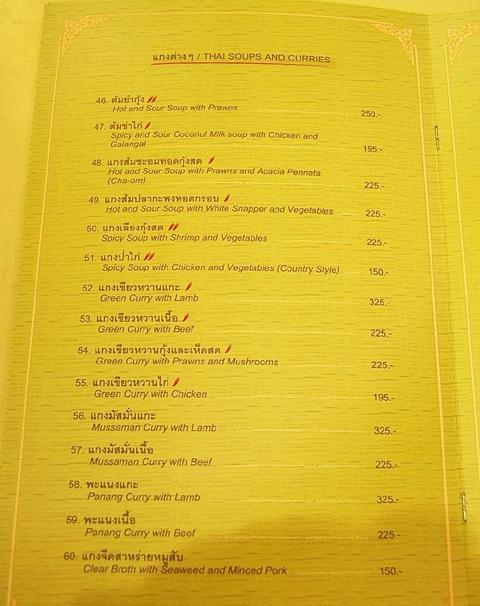 แกงต่างๆ / THAI SOUPS AND CURRIES
46. ต้มยำกุ้ง
Hot and Sour Soup with Prawns 250.-
47. ต้มข่าไก่
Spicy and Sour Coconut Milk soup with Chicken and
Galangal 195.-
48. แกงส้มชะอมทอดกุ้งสด
Hot and Sour Soup with Prawns and Acacia Pennata
(Cha-om) 225.-
49. แกงส้มปลากะพงทอดกรอบ
Hot and Sour Soup with White Snapper and Vegetables 225.-
50. แกงเลียงกุ้งสด
Spicy Soup with Shrimp and Vegetables 225.-
51. แกงป่าไก่
Spicy Soup with Chicken and Vegetables (Country Style) 150.-
52. แกงเขียวหวานแกะ
Green Curry with Lamb 325.-
53. แกงเขียวหวานเนื้อ
Green Curry with Beef 225.-
54. แกงเขียวหวานกุ้งและเห็ดสด
Green Curry with Prawns and Mushrooms 225.-
55. แกงเขียวหวานไก่
Green Curry with Chicken 195.-
56. แกงมัสมั่นแกะ
Mussaman Curry with Lamb 325.-
57. แกงมัสมั่นเนื้อ
Mussaman Curry with Beef 225.-
58. พะแนงแกะ
Panang Curry with Lamb 325.-
59. พะแนงเนื้อ
Panang Curry with Beef 225.-
60. แกงจืดสาหร่ายหมูสับ
Clear Broth with Seaweed and Minced Pork 150.-